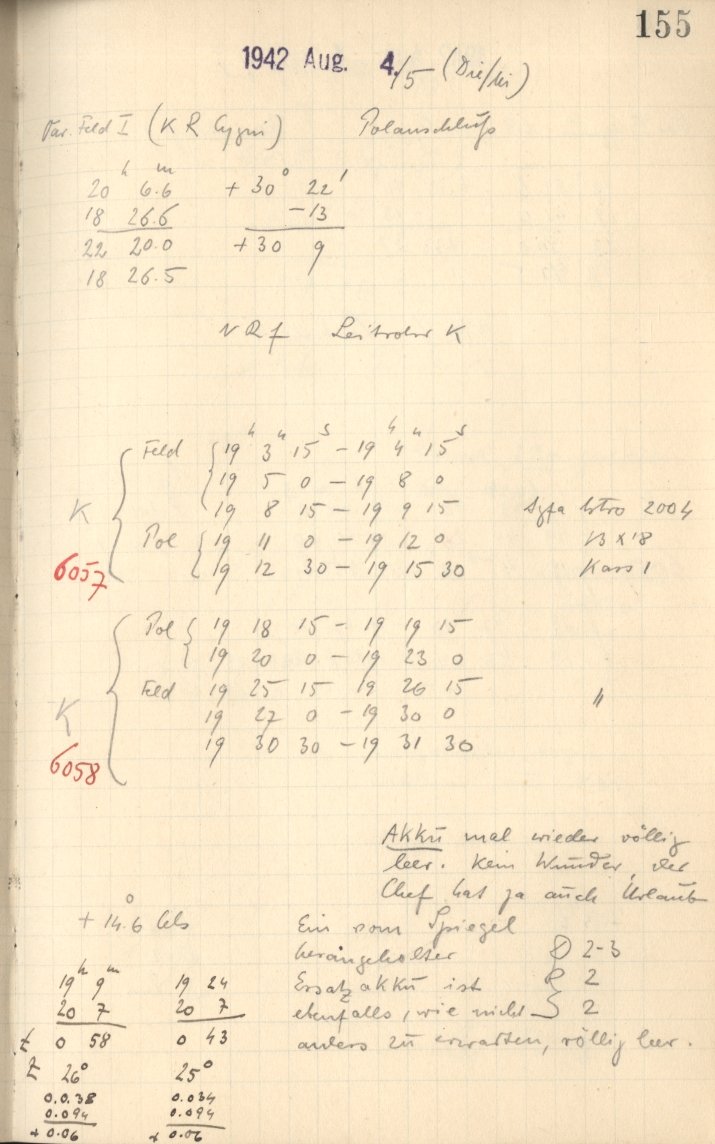 155
1942 Aug. 4./5 (Die/Mi)
Var. Feld I (K R Cygni) Polanschluß
20 h 6.6 m + 30° 22'
18 26.6 - 13
22 20.0 + 30 9
18 26.5
Leitrohr K
Feld { 19 h 3 m 15 s - 19 h 4 m 15 s
19 5 0 - 19 8 0
K 19 8 15 - 19 9 15 Agfa Astro 2004
Pol { 19 11 0 - 19 12 0 13 X 18
6057 19 12 30 - 19 15 30 Kass 1
Pol { 19 18 15 - 19 19 15
19 20 0 - 19 23 0
Feld 19 25 15 19 26 15 "
K 19 27 0 - 19 30 0
6058 19 30 30 - 19 31 30
Akku mal wieder völlig
leer. Kein Wunder, der
Chef hat ja auch Urlaub
+ 14.6° Cels
Ein vom Spiegel
herangeholter 2-3
Ersatzakku ist 2
ebenfalls, wie nicht 2
anders zu erwarten, völlig leer.
19 h 9 m 19 24
20 7 20 7
t 0 58 0 43
z 26° 25°
0.0.38 0.034
0.094 0.094
+ 0.06 + 0.06